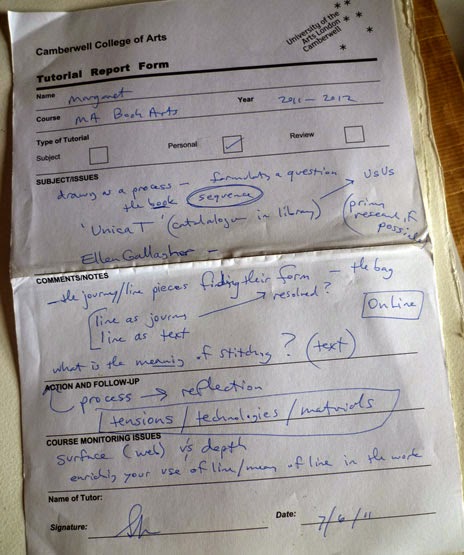 Camberwell College of Arts
University of the
Arts London
Camberwell
Tutorial Report Form
Name Margaret
Year 2011 – 2012
Course MA Book Arts
Type of Tutorial
Subject Personal Review
SUBJECT/ISSUES
drawing as a process – formulate a question
the book sequence
'Unica T' (catalogue in library)
(primary
research if
possible)
Ellen Gallagher –
COMMENTS/NOTES
– the journey/line pieces finding their form – the bag
line as journey resolved?
line as text
Online
what is the meaning of stitching? (text)
ACTION AND FOLLOW-UP
process → reflection
tensions / technologies / materials
COURSE MONITORING ISSUES
surface (web) v's depth
enriching your use of line/meaning of line in the work
Name of Tutor:
Signature:
Date: 7/6/11